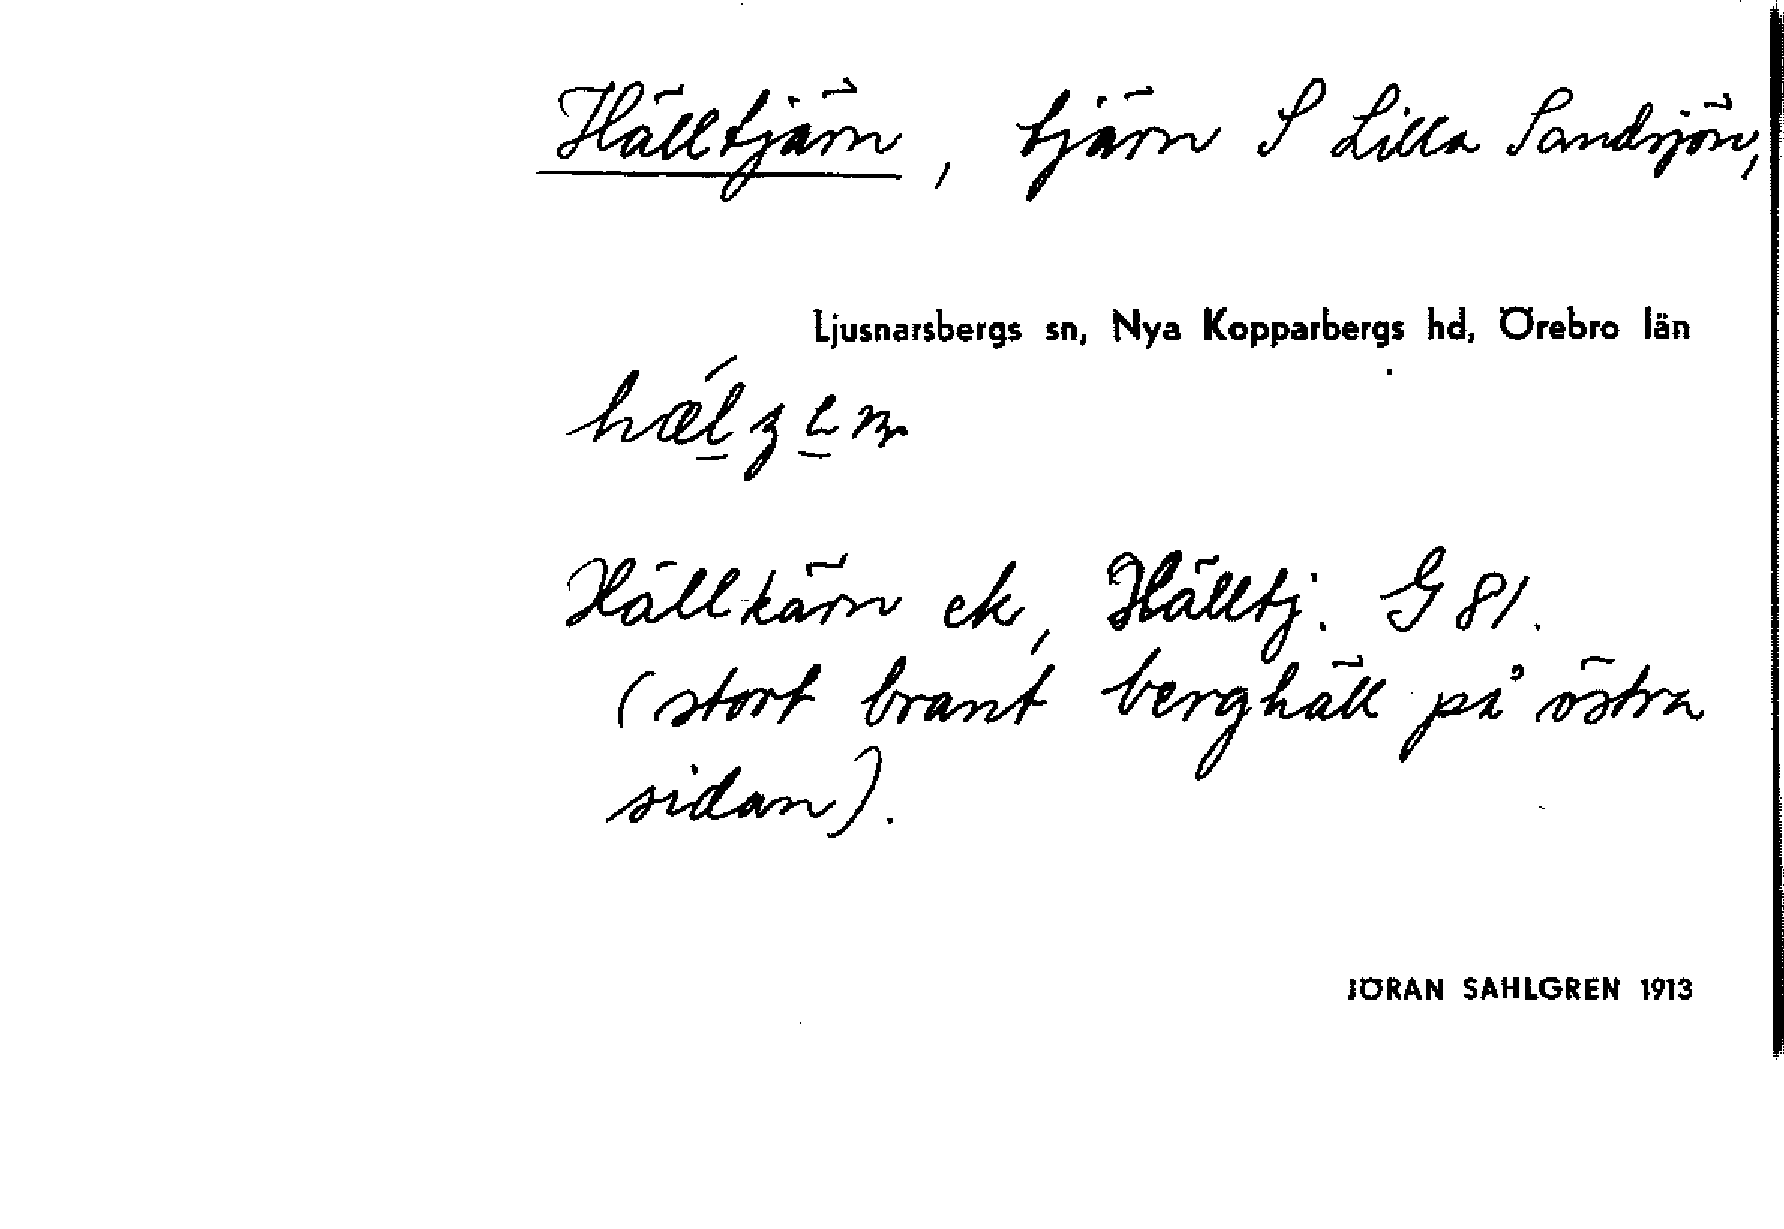 Hälltjärn, tjärn S Lilla Sandsjön,
Ljusnarsbergs sn, Nya Kopparbergs hd, Örebro län
Hällkärn ek, Hälltj. G 81.
(stort brant berghäll på östra
sidan).
JÖRAN SAHLGREN 1913